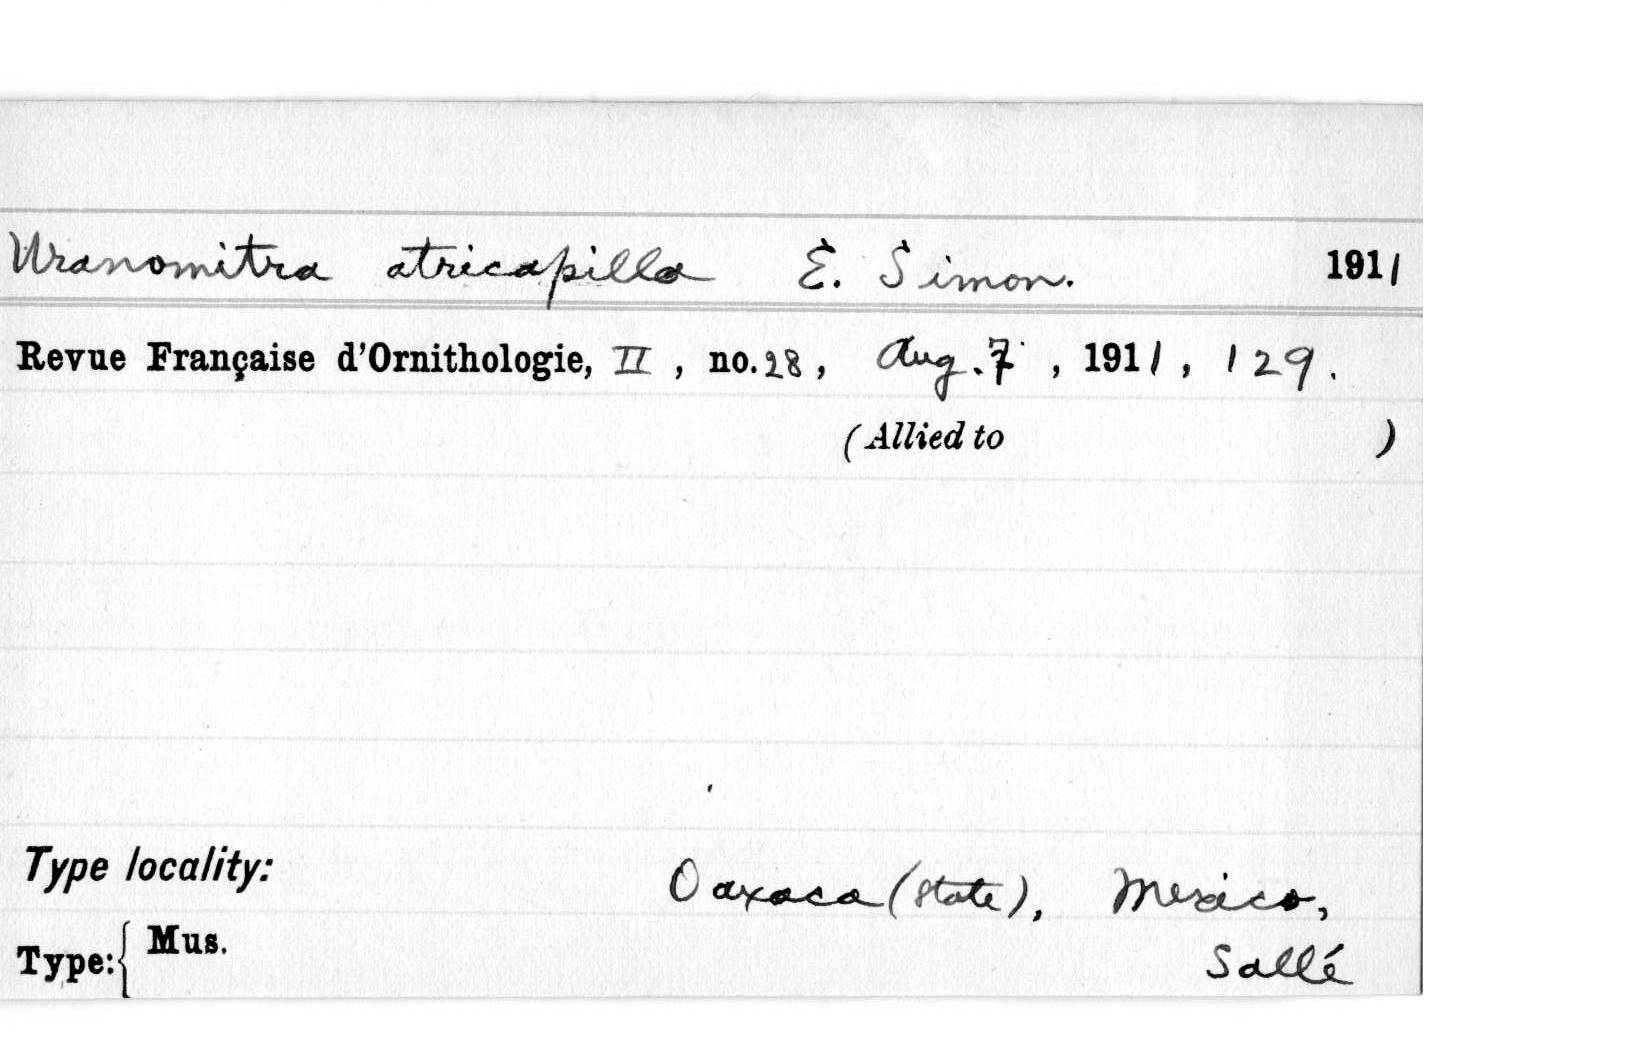 Uranomitra atricapilla E. Simon. 1911
Revue Française d'Ornithologie, II, no. 28, Aug. 7, 1911, 129.
(Allied to )
Type locality: Oaxaca (state), Mexico,
Type: { Mus. Sallé